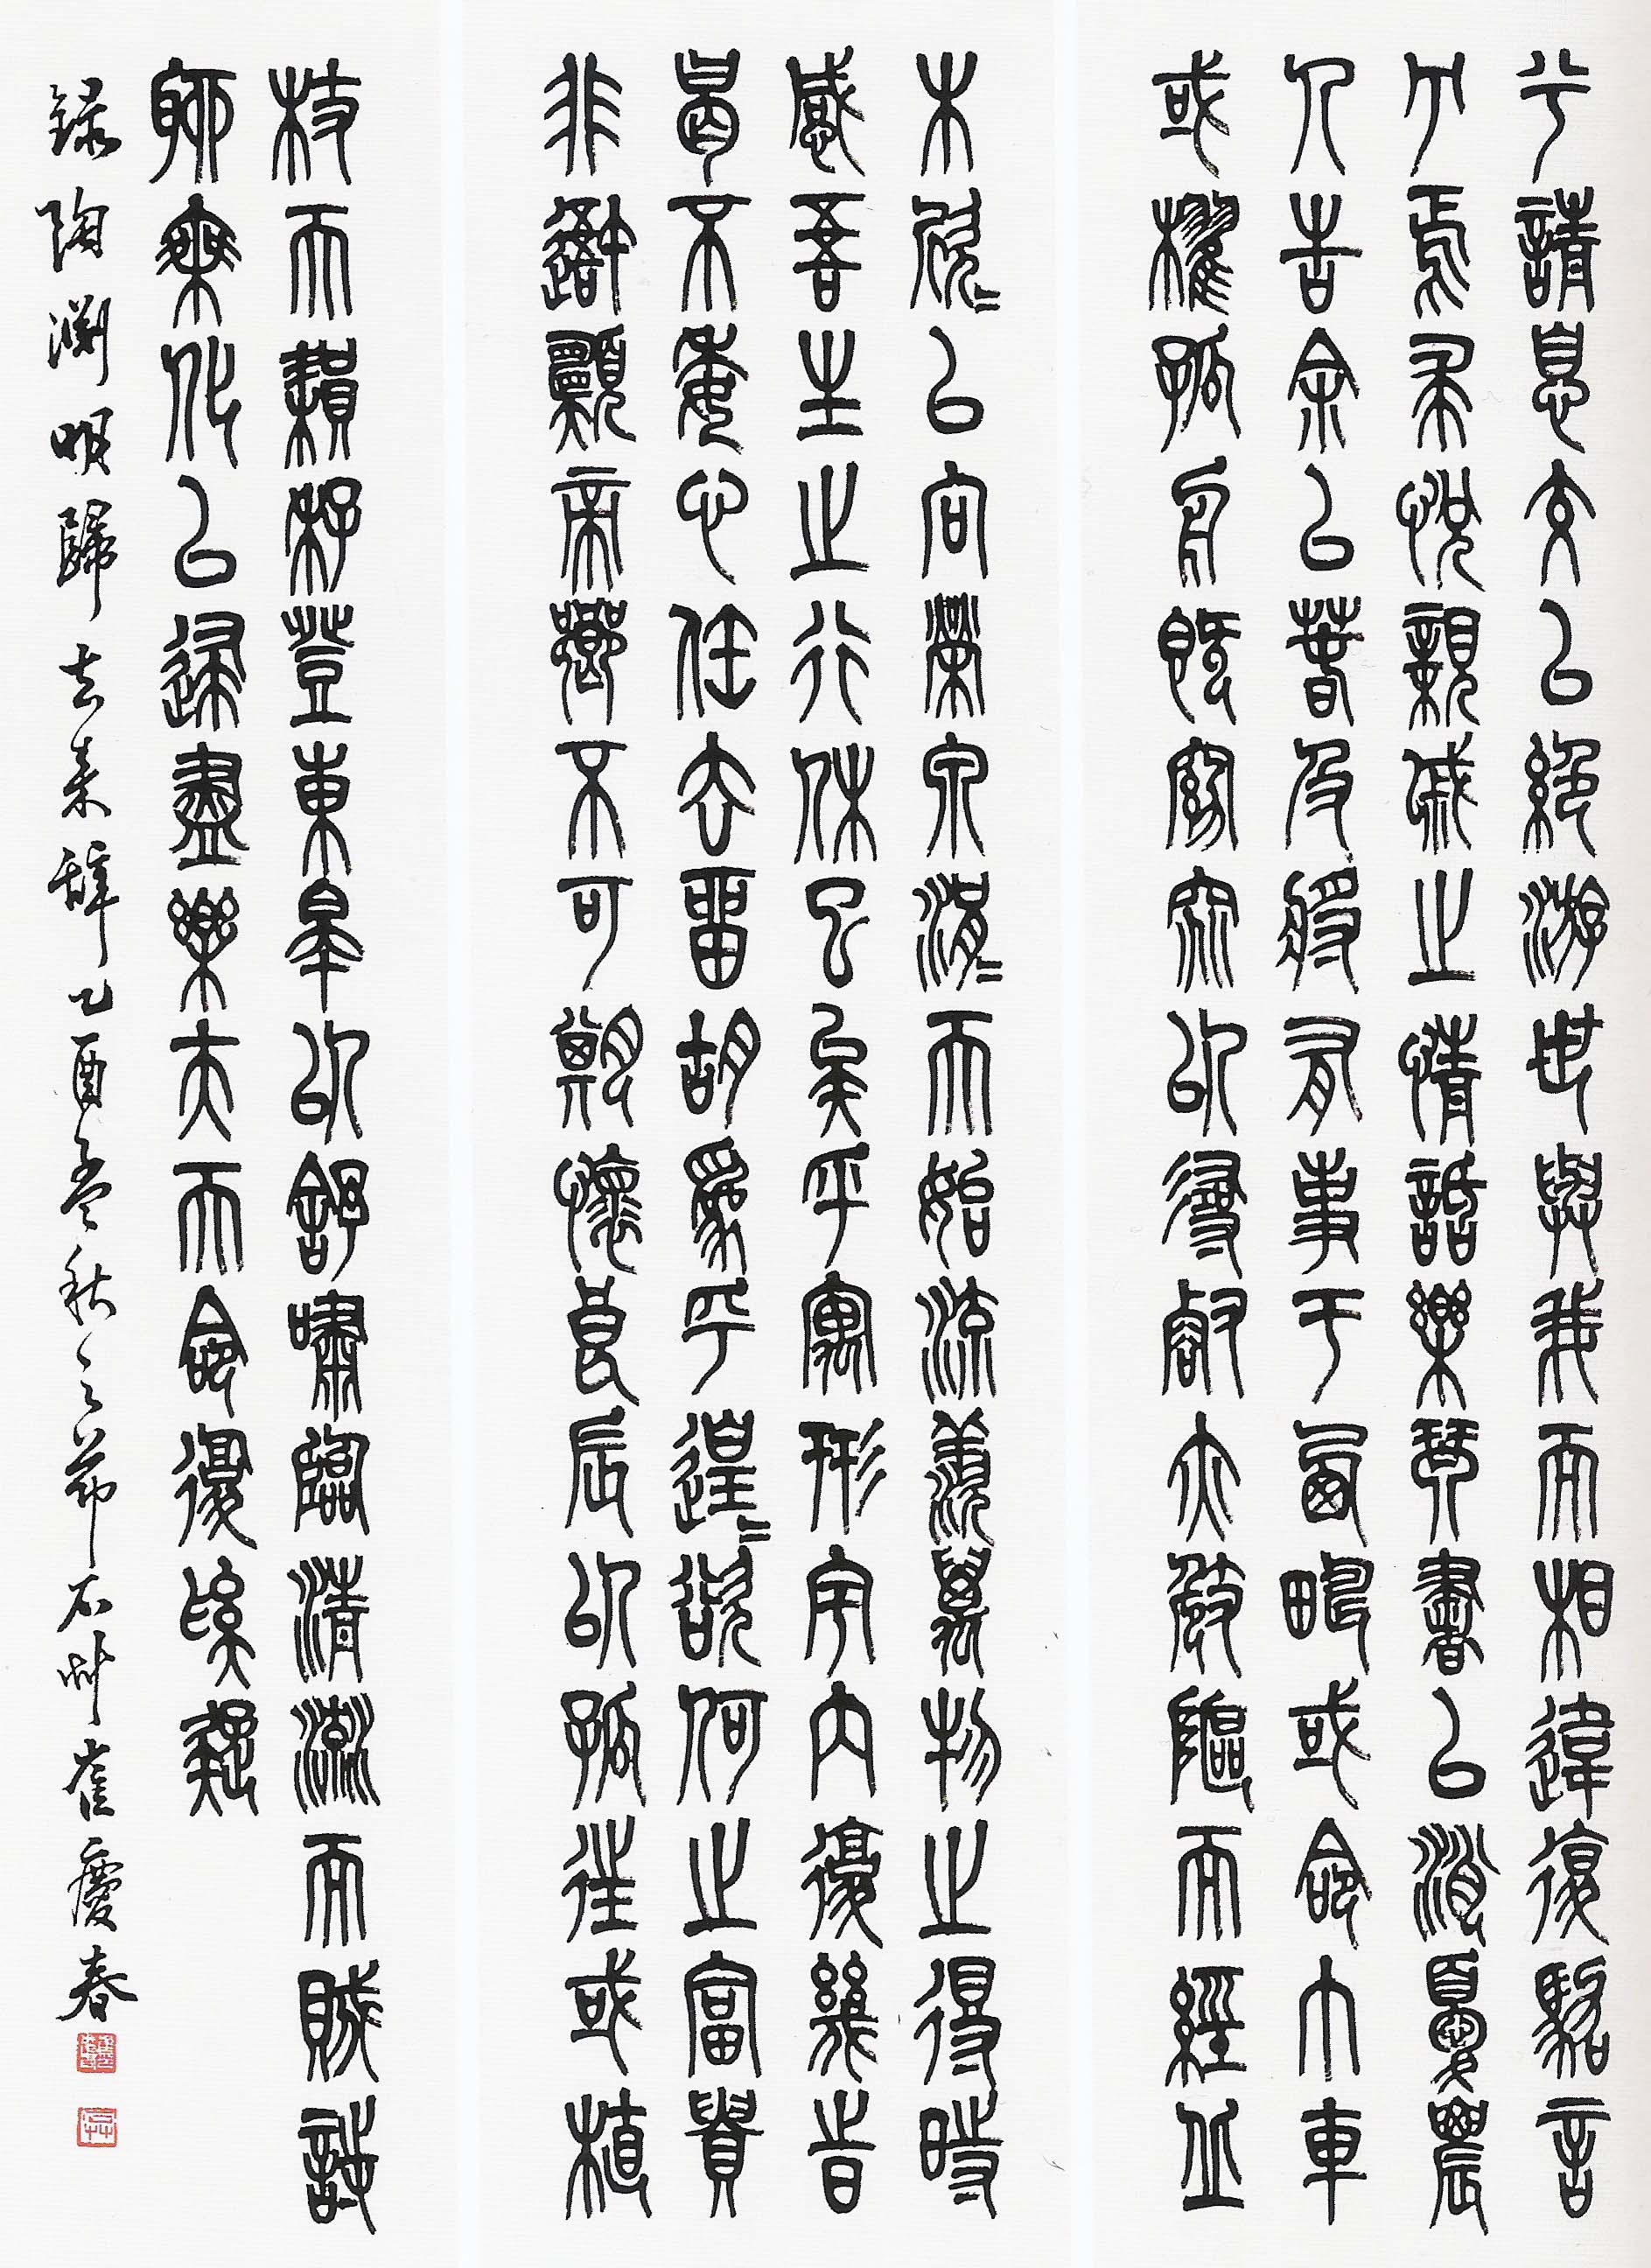 兮請息交以絕游世與我而相違復駕言
兮焉求悅親戚之情話樂琴書以消憂農
人告余以春及將有事于西疇或命巾車
或櫂孤舟既窈窕以尋壑亦崎嶇而經丘
木欣〻以向榮泉涓〻而始流羨萬物之得時
感吾生之行休已矣乎寓形宇內復幾時
曷不委心任去留胡為乎遑〻欲何之富貴
非吾願帝鄉不可期懷良辰以孤往或植
杖而耘耔登東皋以舒嘯臨清流而賦詩
聊乘化以歸盡樂夫天命復奚疑
錄陶淵明歸去來辭乙酉孟秋之節石艸崔慶春